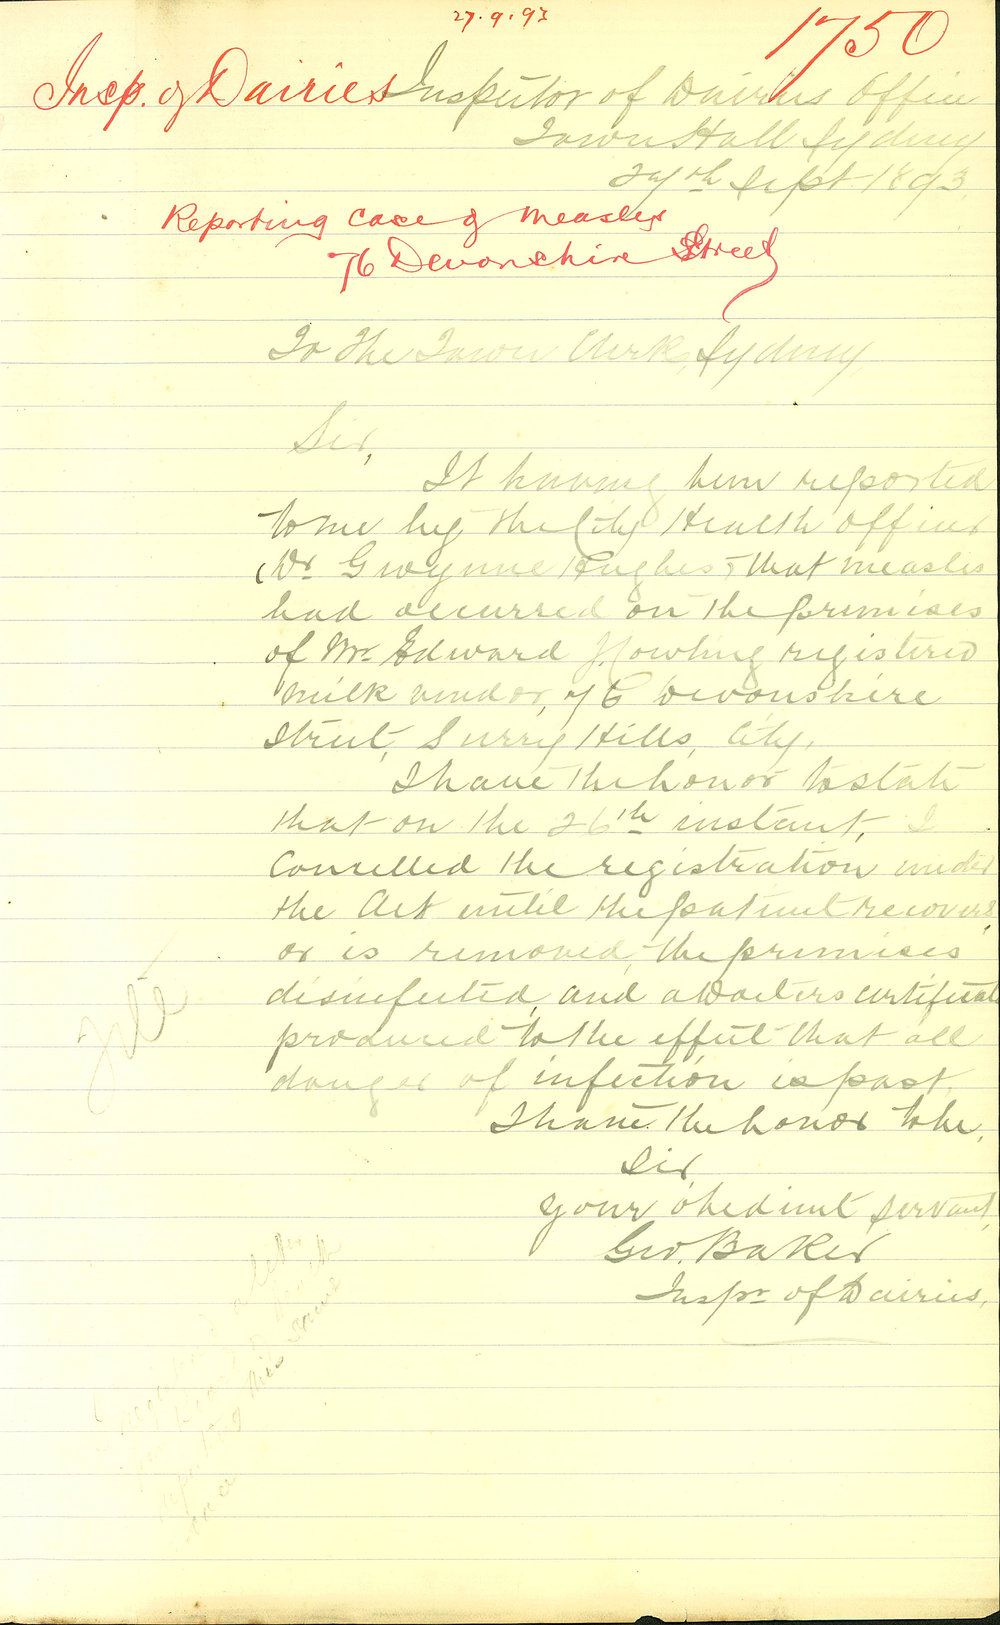 27.9.93
1750
Insp. of Dairies
Inspector of Dairies Office
Town Hall Sydney
27th Sept 1893
Reporting case of measles
76 Devonshire Street
To The Town Clerk, Sydney,
Sir,
It having been reported
to me by the City Health Officer
(Dr Gwynne Hughes) that measles
had occurred on the premises
of Mr Edward J. Cowling registered
milk vendor, 76 Devonshire
Street, Surry Hills, City,
I have the honor to state
that on the 26th instant, I
Cancelled the registration under
the Act until the patient recovers
or is removed, the premises
disinfected, and a Doctors certificate
produced to the effect that all
danger of infection is past.
I have the honor to be,
Sir,
Your obedient servant,
Geo. Baker
Inspr of Dairies,